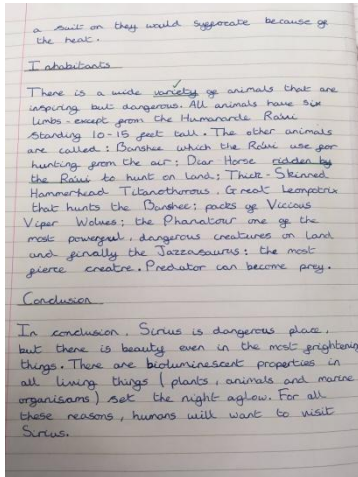 a suit on they would suffocate because of
the heat.
Inhabitants
There is a wide variety of animals that are
inspiring but dangerous. All animals have six
limbs - except from the Humanarde Ra'vi
standing 10-15 feet tall. The other animals
are called: Banshee which the Ra'vi use for
hunting from the air; Diar Horse ridden by
the Ra'vi to hunt on land; Thick-Skinned
Hammerhead Titanothorous, Great Leonoptrix
that hunts the Banshee; packs of Vicious
Viper Wolves; the Phanatour one of the
most powerful, dangerous creatures on land
and finally the Jazzasaurus: the most
fierce creatre. Predator can become prey.
Conclusion
In conclusion, Sirius is dangerous place,
but there is beauty even in the most frightening
things. There are bioluminescent properties in
all living things (plants, animals and marine
organisams) set the night aglow. For all
these reasons, humans will want to visit
Sirius.